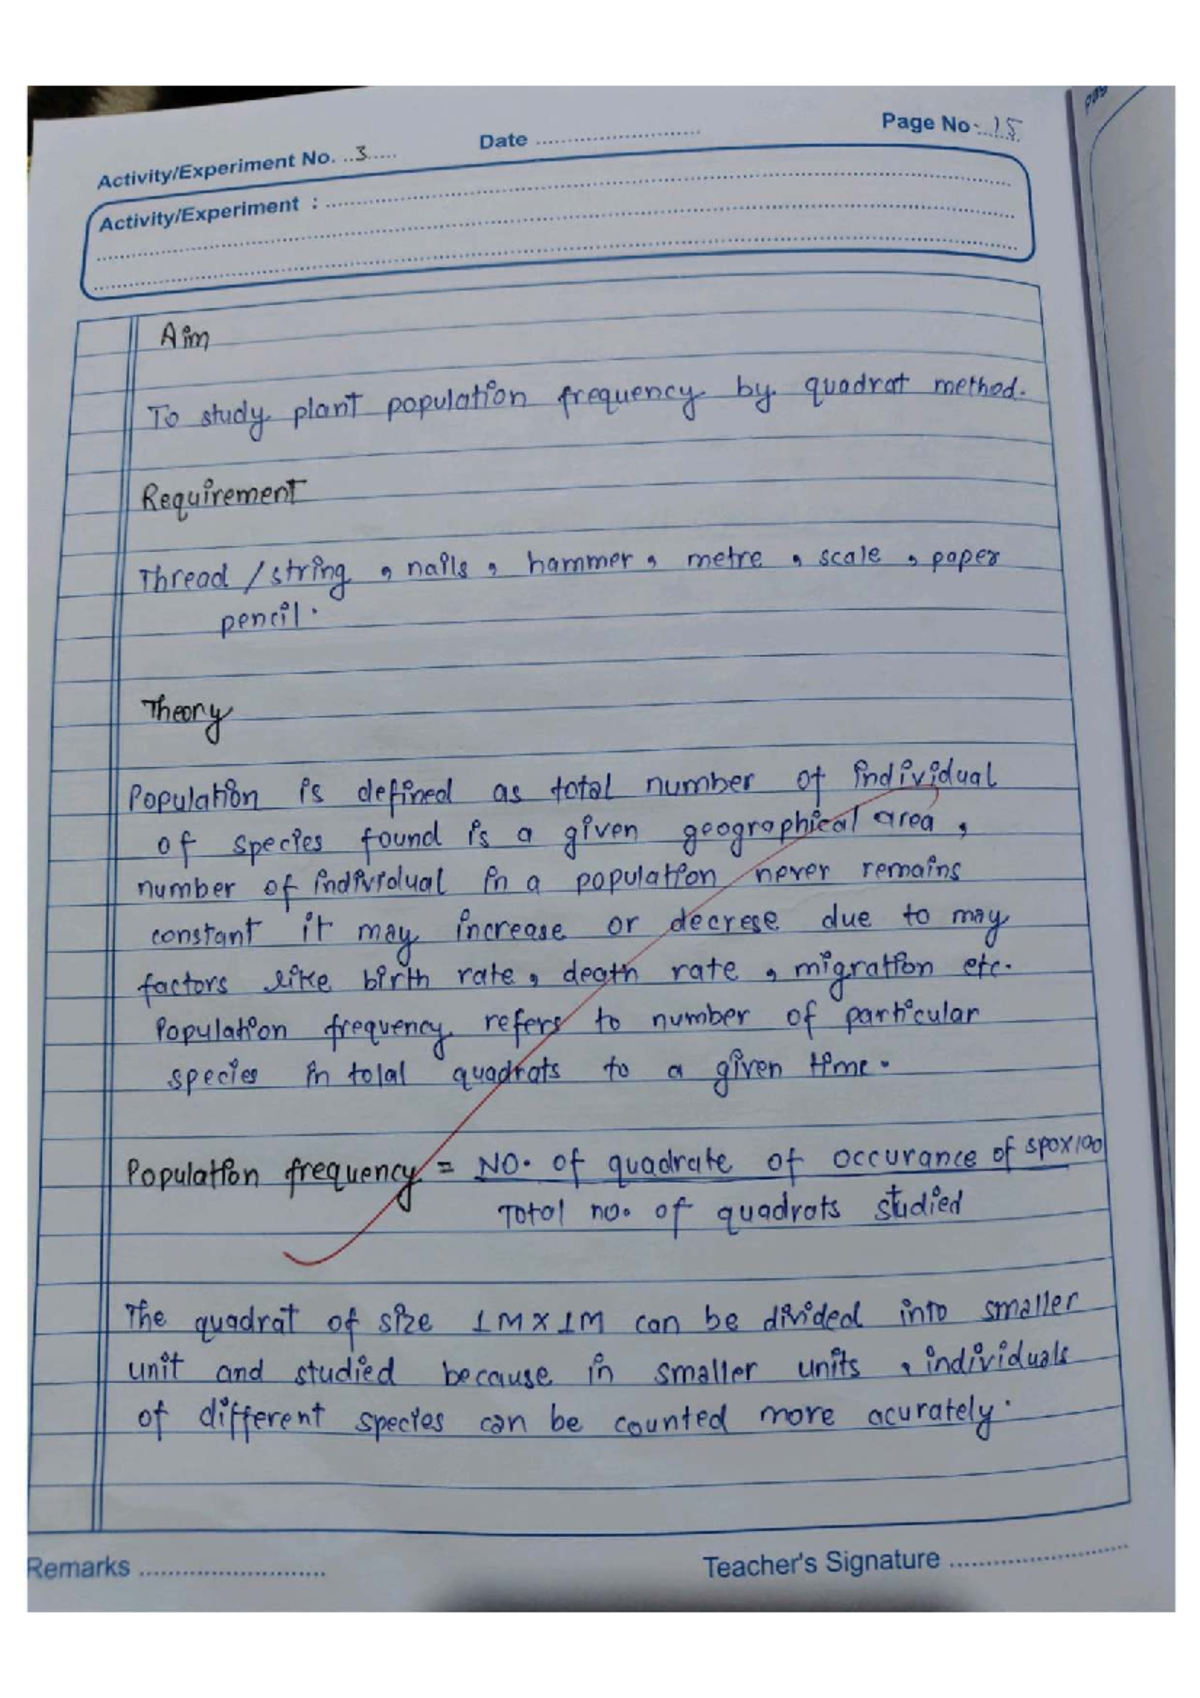 Activity/Experiment No. 3 Date Page No. 15
Activity/Experiment :
Aim
To study plant population frequency by quadrat method.
Requirement
Thread / string , nails , hammer , metre , scale , paper
pencil.
Theory
Population is defined as total number of individual
of species found is a given geographical area ,
number of individual in a population never remains
constant it may increase or decrese due to may
factors like birth rate , death rate , migration etc.
Population frequency refers to number of particular
species in total quadrats to a given time.
Population frequency = NO. of quadrate of occurance of spo×100
Total no. of quadrats studied
The quadrat of size 1M×1M can be divided into smaller
unit and studied because in smaller units , individuals
of different species can be counted more acurately.
Remarks Teacher's Signature